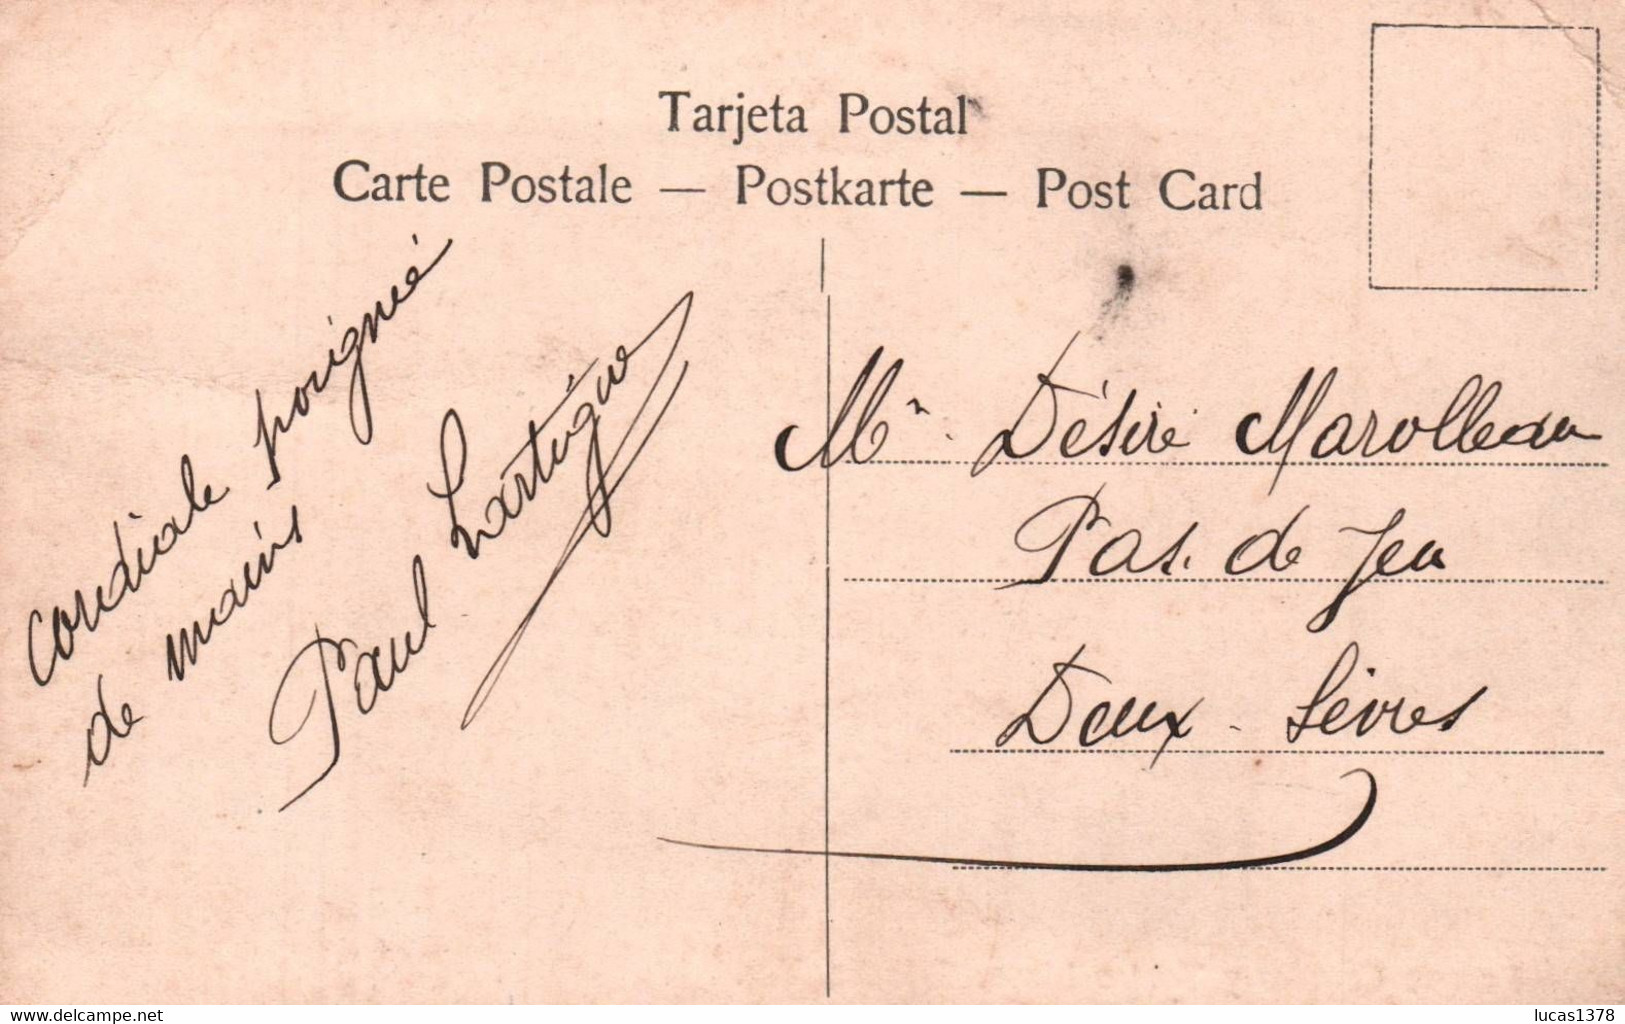 Tarjeta Postal
Carte Postale — Postkarte — Post Card
cordiale poignié
de mains
Paul Lartigue
Mr. Désiré Marolleau
Pas. de Jeu
Deux - Sèvres
www.delcampe.net
lucas1378